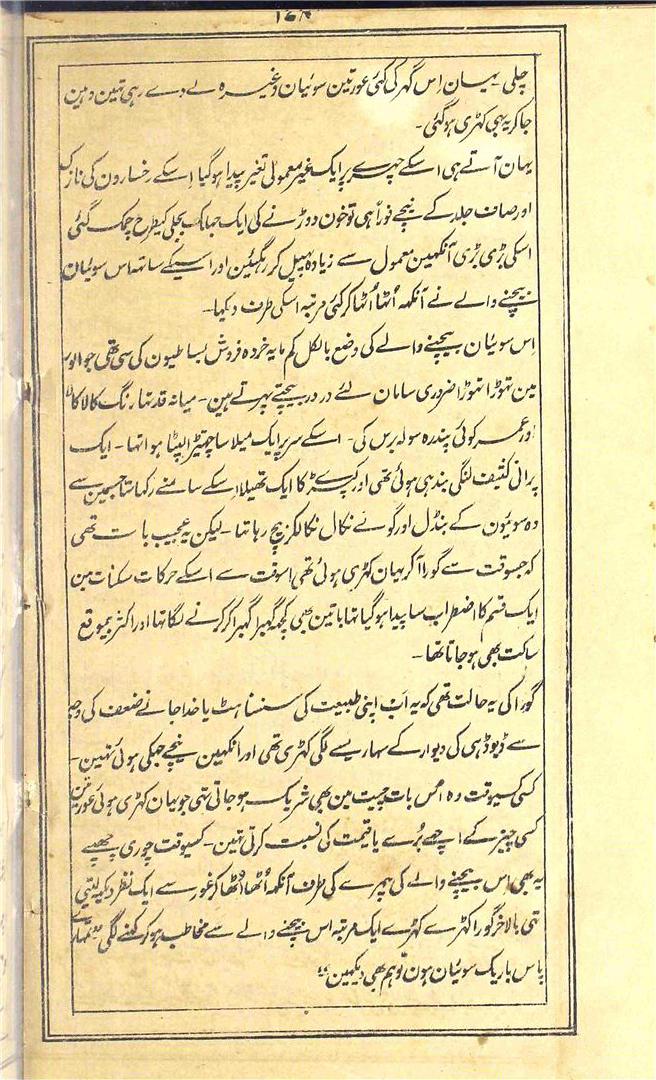 ۱۶۸
چلی۔ یہان اس گہر کی کئی عورتین سوئیان وغیرہ لے دے رہی تہین وہین
جا کر یہ بہی کہڑی ہو گئی۔
یہان آتے ہی اسکے چہرے پر ایک غیر معمولی تغیر پیدا ہو گیا اسکے رخسارون کی نازک
اور صاف جلد کے نیچے فوراً ہی تو خون دوڑنے کی ایک جہلک بجلی کیطرح چمک گئی
اسکی بڑی بڑی آنکہین معمول سے زیادہ پہیل کر رہگئین اور اسیکے ساتہہ اس سوئیان
بیچنے والے نے آنکہہ اُٹہا اُٹہا کر کئی مرتبہ اسکی طرف دیکہا۔
اِس سوئیان بیچنے والے کی وضع بالکل کم مایہ خردہ فروش بساطیون کی سی تھی جو
مین تہوڑا تہوڑا ضروری سامان لئے در در بیچتے پہرتے ہین۔ میانہ قد تہا رنگ کالا
اور عمر کوئی پندرہ سولہ برس کی۔ اسکے سر پر ایک میلا سا چیتہڑا لپٹا ہوا تہا۔ ایک
پرانی کثیف لنگی بندہی ہوئی تھی اور کپڑے کا ایک تھیلا اسکے سامنے رکہا تہا جسمین سے
وہ سوئیون کے بنڈل اور گولے نکال نکالکر بیچ رہا تہا۔ لیکن یہ عجیب بات تھی
کہ جسوقت سے گورا آکر یہان کہڑی ہوئی تھی اسوقت سے اسکے حرکات سکنات مین
ایک قسم کا اضطراب سا پیدا ہو گیا تہا باتین بھی کچہہ گہبرا گہبرا کر کرنے لگا تہا اور اکثر بیموقع
ساکت بھی ہو جاتا تھا۔
گورا کی یہ حالت تھی کہ یہ اب اپنی طبیعت کی سنسناہٹ یا خدا جانے ضعف کی وجہ
سے ڈیوڈہی کی دیوار کے سہارے سے لگی کہڑی تھی اور انکہین نیچے جہکی ہوئی تہین۔
کسی کسیوقت وہ اُس بات چیت مین بھی شریک ہو جاتی تہی جو یہان کہڑی ہوئی عورتین
کسی چیز کے اچہے بُرے یا قیمت کی نسبت کرتی تہین۔ کسیوقت چوری چہپے
یہ بھی اس بیچنے والے کی چہرے کی طرف آنکہہ اُٹھا اُٹھا کر غور سے ایک نظر دیکہہ لیتی
تہی بالاخر گورا کہڑے کہڑے ایک مرتبہ اس بیچنے والے سے مخاطب ہو کر کہنے لگی "تمہارے
پاس باریک سوئیان ہون تو ہم بھی دیکہین"